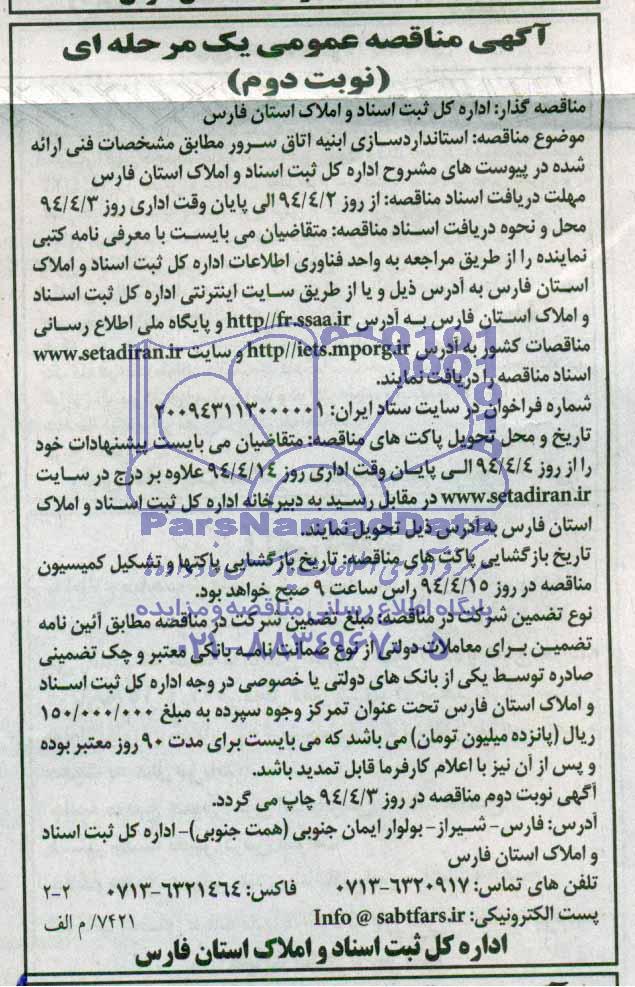 آگهی مناقصه عمومی یک مرحله ای
(نوبت دوم)
مناقصه گذار: اداره کل ثبت اسناد و املاک استان فارس
موضوع مناقصه: استانداردسازی ابنیه اتاق سرور مطابق مشخصات فنی ارائه
شده در پیوست های مشروح اداره کل ثبت اسناد و املاک استان فارس
مهلت دریافت اسناد مناقصه: از روز ۹۴/۴/۲ الی پایان وقت اداری روز ۹۴/۴/۳
محل و نحوه دریافت اسناد مناقصه: متقاضیان می بایست با معرفی نامه کتبی
نماینده را از طریق مراجعه به واحد فناوری اطلاعات اداره کل ثبت اسناد و املاک
استان فارس به آدرس ذیل و یا از طریق سایت اینترنتی اداره کل ثبت اسناد
و املاک استان فارس به آدرس http//fr.ssaa.ir و پایگاه ملی اطلاع رسانی
مناقصات کشور به آدرس http//iets.mporg.ir و سایت www.setadiran.ir
اسناد مناقصه را دریافت نمایند.
شماره فراخوان در سایت ستاد ایران: ۲۰۰۹۴۳۱۱۳۰۰۰۰۰۱
تاریخ و محل تحویل پاکت های مناقصه: متقاضیان می بایست پیشنهادات خود
را از روز ۹۴/۴/۴ الی پایان وقت اداری روز ۹۴/۴/۱۴ علاوه بر درج در سایت
www.setadiran.ir در مقابل رسید به دبیرخانه اداره کل ثبت اسناد و املاک
استان فارس به آدرس ذیل تحویل نمایند.
ParsNamadData
تاریخ بازگشایی پاکت های مناقصه: تاریخ بازگشایی پاکتها و تشکیل کمیسیون
مناقصه در روز ۹۴/۴/۱۵ راس ساعت ۹ صبح خواهد بود.
پایگاه اطلاع رسانی مناقصه و مزایده
نوع تضمین شرکت در مناقصه: مبلغ تضمین شرکت در مناقصه مطابق آئین نامه
تضمین برای معاملات دولتی از نوع ضمانت نامه بانکی معتبر و چک تضمینی
۰۲۱-۸۸۳۴۹۶۷۰-۵
صادره توسط یکی از بانک های دولتی یا خصوصی در وجه اداره کل ثبت اسناد
و املاک استان فارس تحت عنوان تمرکز وجوه سپرده به مبلغ ۱۵۰/۰۰۰/۰۰۰
ریال (پانزده میلیون تومان) می باشد که می بایست برای مدت ۹۰ روز معتبر بوده
و پس از آن نیز با اعلام کارفرما قابل تمدید باشد.
آگهی نوبت دوم مناقصه در روز ۹۴/۴/۳ چاپ می گردد.
آدرس: فارس- شیراز- بولوار ایمان جنوبی (همت جنوبی)- اداره کل ثبت اسناد
و املاک استان فارس
تلفن های تماس: ۶۳۲۰۹۱۷-۰۷۱۳ فاکس: ۶۳۲۱۴۶۴-۰۷۱۳ ۲-۲
پست الکترونیکی: Info @ sabtfars.ir ۷۴۲۱/ م الف
اداره کل ثبت اسناد و املاک استان فارس